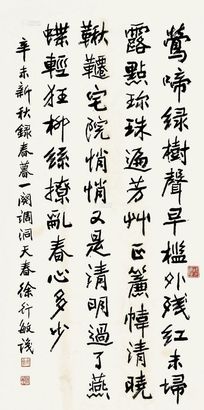 鶯啼綠樹聲早檻外殘紅未埽
露點珍珠遍芳艸正簾幃清曉
鞦韆宅院悄悄又是清明過了燕
蝶輕狂柳絲撩亂春心多少
辛未新秋錄春暮一闋調洞天春徐行敏識